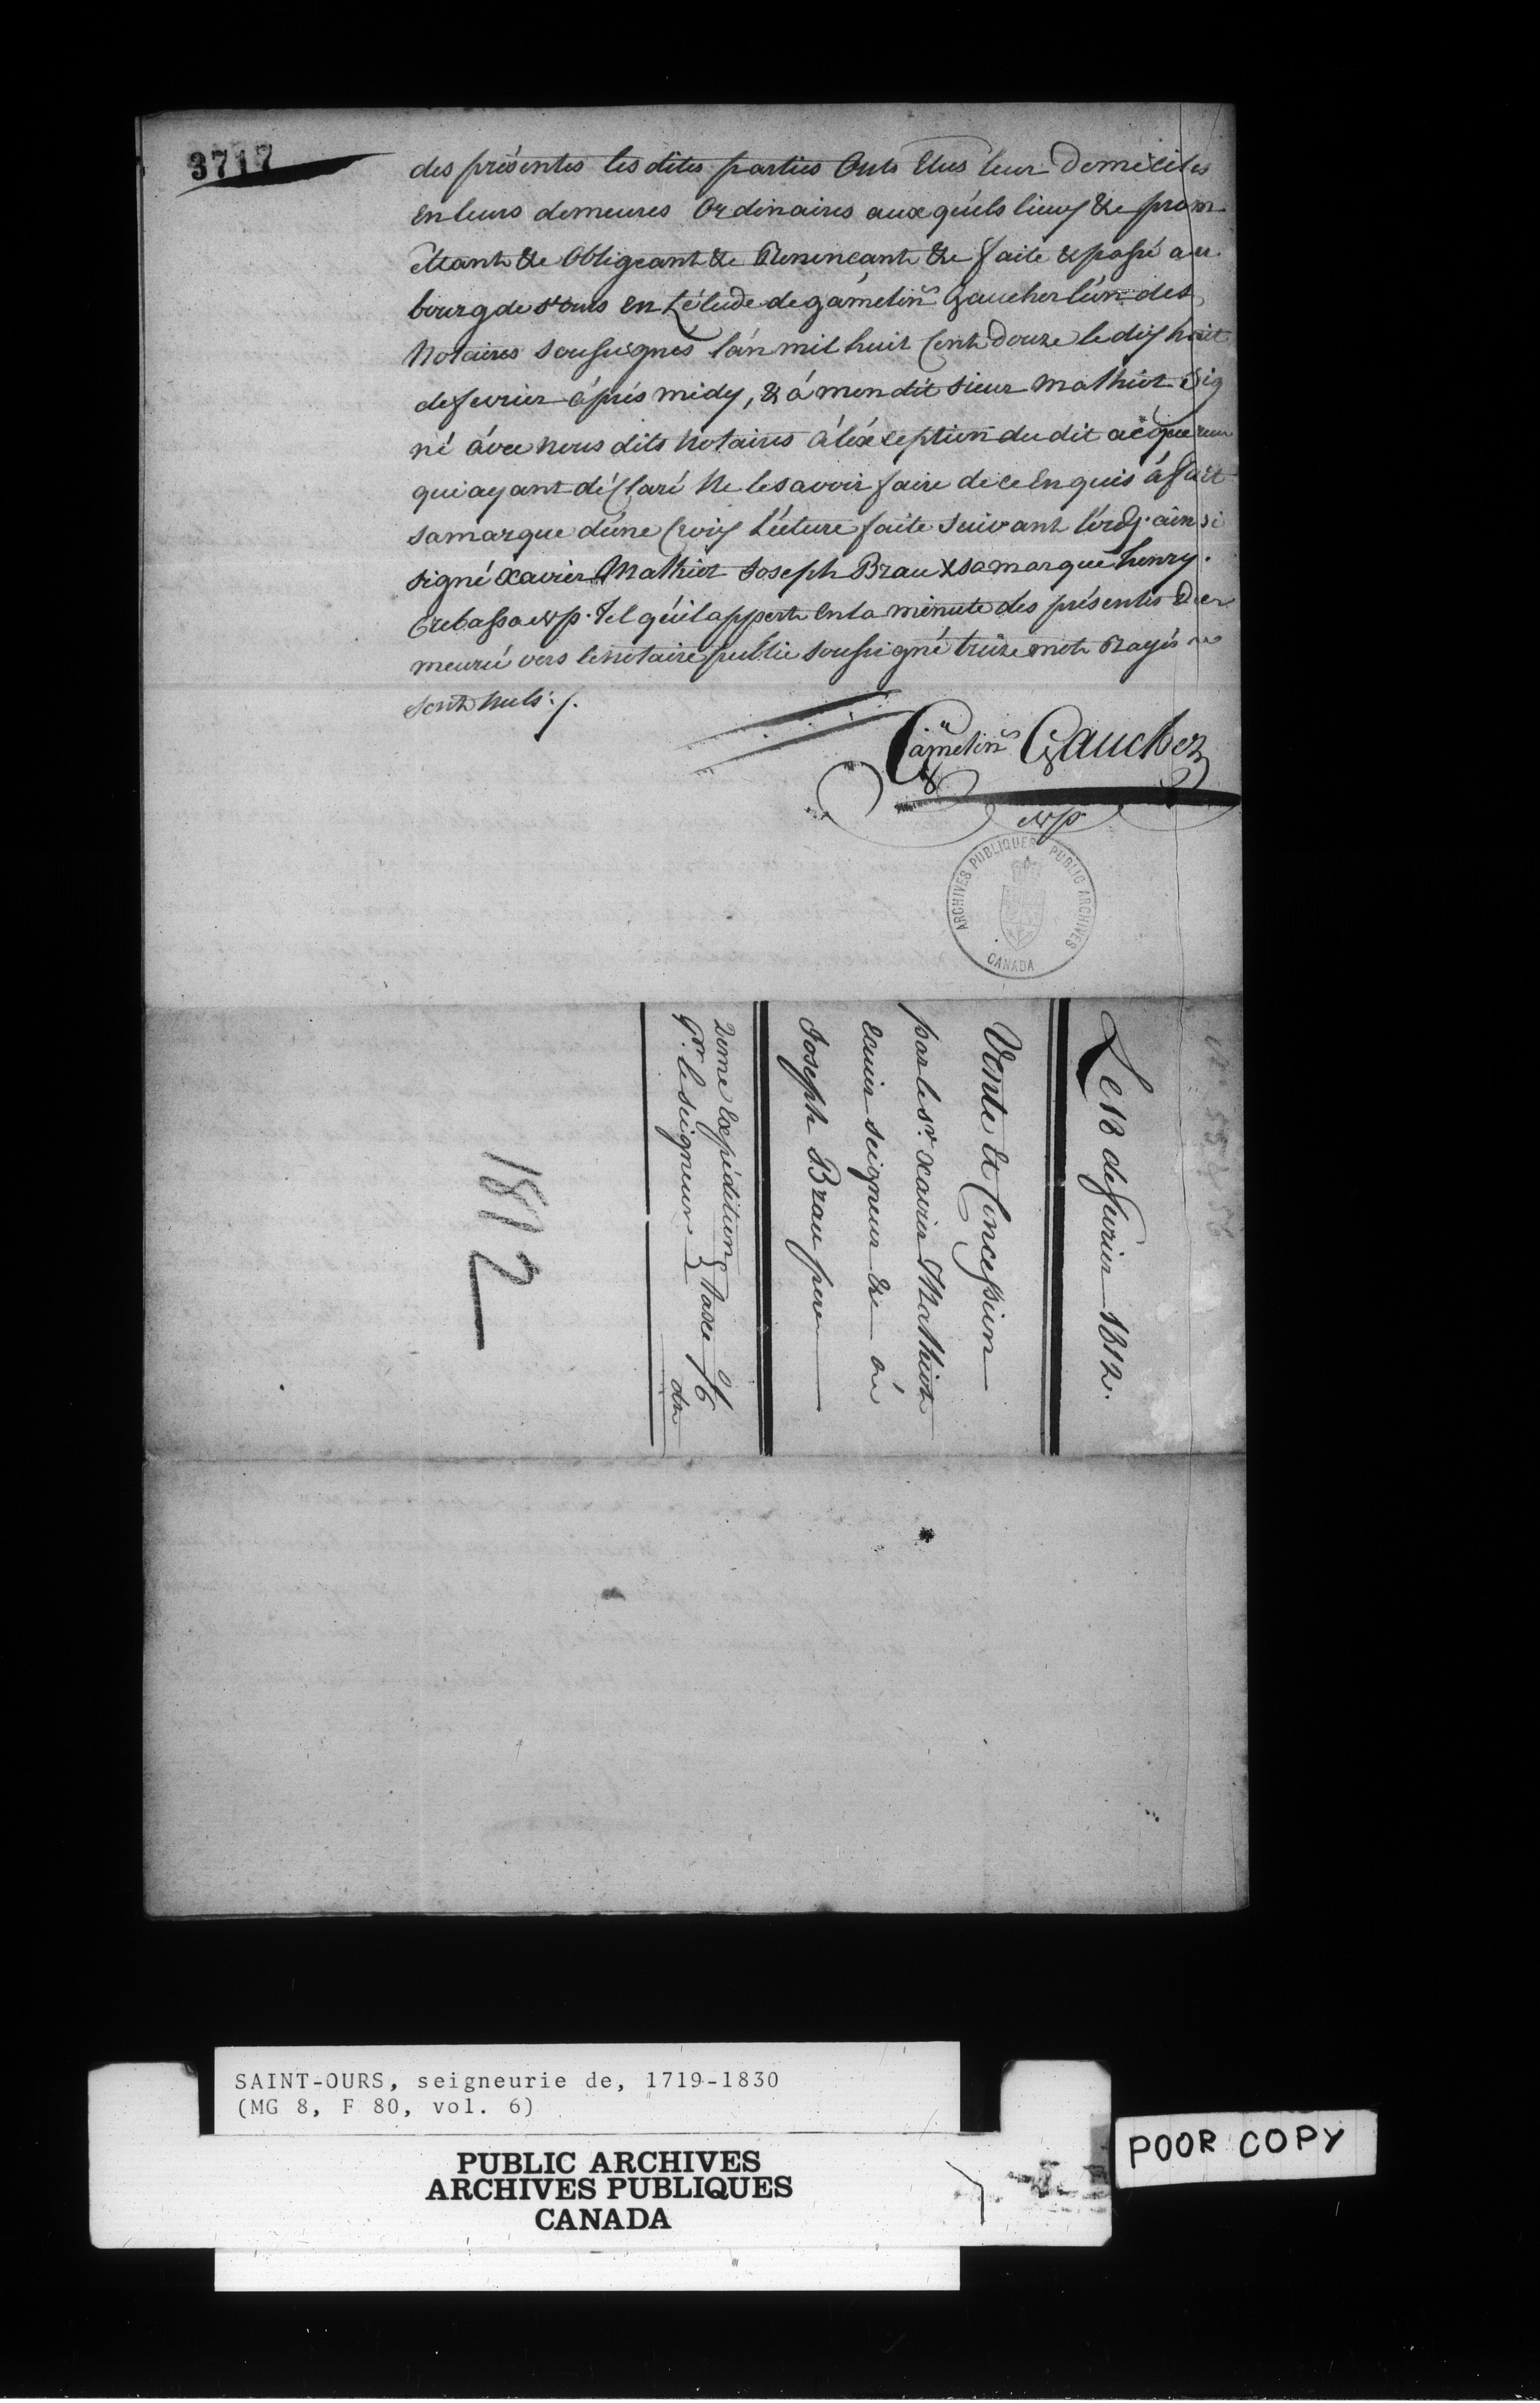 3717
des présentes les dites parties Onts Elus leur Domiciles
En leurs demeures Ordinaires aux qu'els lieux &e prom
ettant &e Obligeant &e Renoncant &e faite & passé au
bourg de st Ours En L'étude de gámelin Gaucher l'ún des
Notaires soussignés l'án mil huit Cent Douze le dix huit
de fevrier áprés midy, & á mon dit sieur Mathiot sig
né ávec nous dits Notaires á léxception du dit acquereur
qui ayant déclaré Ne le savoir faire de ce Enquis á fait
sa marque d'une Croix Lecture faite suivant l'ord: ainsi
signé Xavier Mathiot Joseph Brau X sa marque henry
Crebassa Np. Tel qu'il appert En la minute des présentes De
meurée vers le Notaire public soussigné treize mots Rayés
sont Nuls ./.
Gámelin Gaucher
Np
ARCHIVES PUBLIQUES PUBLIC ARCHIVES
CANADA
Le 18 de fevrier 1812.
Vente et Concession
par le Sr. Xavier Mathiot
Ecuier seigneur &e á
Joseph Brau pere
2eme Expédition
pr. le seigneur
Taxée /6
1812
SAINT-OURS, seigneurie de, 1719-1830
(MG 8, F 80, vol. 6)
PUBLIC ARCHIVES
ARCHIVES PUBLIQUES
CANADA
POOR COPY